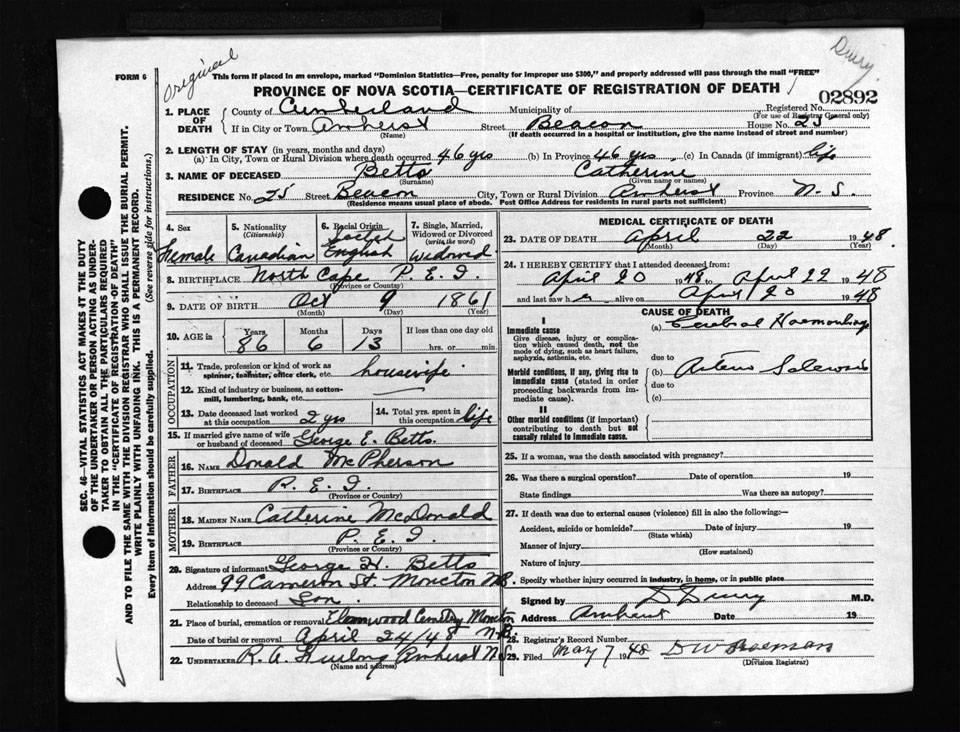 Original
FORM 6
This form if placed in an envelope, marked "Dominion Statistics—Free, penalty for improper use $300," and properly addressed will pass through the mail "FREE"
PROVINCE OF NOVA SCOTIA—CERTIFICATE OF REGISTRATION OF DEATH
02892
1. PLACE OF DEATH
County of Cumberland Municipality of Registered No.
(For use of Registrar General only)
If in City or Town Amherst Street Beacon House No. 25
(Name) (If death occurred in a hospital or institution, give the name instead of street and number)
2. LENGTH OF STAY (in years, months and days)
(a) In City, Town or Rural Division where death occurred 46 yrs (b) In Province 46 yrs (c) In Canada (if immigrant) life
3. NAME OF DECEASED Betts Catherine
(Surname) (Given name or names)
RESIDENCE No. 25 Street Beacon City, Town or Rural Division Amherst Province N. S.
(Residence means usual place of abode. Post Office Address for residents in rural parts not sufficient)
4. Sex 5. Nationality (Citizenship) 6. Racial Origin 7. Single, Married, Widowed or Divorced (write the word)
Female Canadian Scotch English Widowed
8. BIRTHPLACE North Cape P. E. I.
(Province or Country)
9. DATE OF BIRTH Oct 9 1861
(Month) (Day) (Year)
10. AGE in Years Months Days If less than one day old
86 6 13 hrs. or min.
OCCUPATION
11. Trade, profession or kind of work as spinner, teamster, office clerk, etc. housewife
12. Kind of industry or business, as cotton-mill, lumbering, bank, etc.
13. Date deceased last worked at this occupation 2 yrs 14. Total yrs. spent in this occupation life
15. If married give name of wife or husband of deceased George E. Betts
FATHER
16. NAME Donald McPherson
17. BIRTHPLACE P. E. I.
(Province or Country)
MOTHER
18. MAIDEN NAME Catherine McDonald
19. BIRTHPLACE P. E. I.
(Province or Country)
20. Signature of informant George H. Betts
Address 99 Cameron St. Moncton N.B.
Relationship to deceased Son
21. Place of burial, cremation or removal Elmwood Cemetery Moncton
Date of burial or removal April 24/48 N.B.
22. UNDERTAKER R. A. Furlong Amherst N.S.
(Name and address)
MEDICAL CERTIFICATE OF DEATH
23. DATE OF DEATH April 22 1948.
(Month) (Day) (Year)
24. I HEREBY CERTIFY that I attended deceased from:
April 20 1948 to April 22 1948
and last saw her alive on April 20 1948
CAUSE OF DEATH
I
Immediate cause (a) Cerebral Haemorrhage
Give disease, injury or complication which caused death, not the mode of dying, such as heart failure, asphyxia, asthenia, etc.
due to
Morbid conditions, if any, giving rise to immediate cause (stated in order proceeding backwards from immediate cause). (b) Arterio Sclerosis
due to
(c)
II
Other morbid conditions (if important) contributing to death but not causally related to immediate cause.
25. If a woman, was the death associated with pregnancy?
26. Was there a surgical operation? Date of operation 19
State findings Was there an autopsy?
27. If death was due to external causes (violence) fill in also the following:—
Accident, suicide or homicide? Date of injury 19
(State which)
Manner of injury
(How sustained)
Nature of injury
Specify whether injury occurred in industry, in home, or in public place
Signed by D Drury M.D.
Address Amherst Date 19
28. Registrar's Record Number
29. Filed May 7 1948
(Division Registrar)
SEC. 46—VITAL STATISTICS ACT MAKES IT THE DUTY
OF THE UNDERTAKER OR PERSON ACTING AS UNDER-
TAKER TO OBTAIN ALL THE PARTICULARS REQUIRED
IN THE "CERTIFICATE OF REGISTRATION OF DEATH"
AND TO FILE THE SAME WITH THE DIVISION REGISTRAR WHO SHALL ISSUE THE BURIAL PERMIT.
WRITE PLAINLY WITH UNFADING INK. THIS IS A PERMANENT RECORD.
Every item of information should be carefully supplied. (See reverse side for instructions.)
Drury